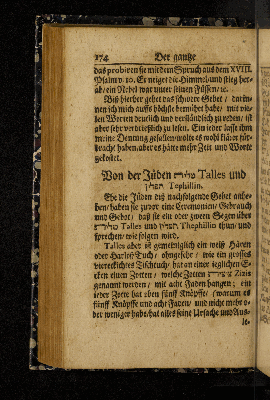 174 Der gantze
das probiren sie mit dem Spruch aus dem XVIII.
Psalm v. 10. Er neiget die Himmel und stieg her-
ab / ein Nebel war unter seinen Füssen / ec.
Biß hierher gehet das schwere Gebet / darin-
nen ich mich auffs höchste bemühet habe / mit vie-
len Worten deutlich und verständlich zu reden / ist
aber sehr verdrießlich zu lesen. Ein jeder lasse ihm
meine Deutung gefallen / wolte es wohl klärer für-
bracht haben / aber es hätte mehr Zeit und Worte
gekostet.
Von der Jüden Talles und
תפילין Tephillin.
Ehe die Jüden diß nachfolgende Gebet anhe-
ben / haben sie zuvor eine Ceremonien / Gebrauch
und Gebet / daß sie ein oder zween Segen über
Talles und תפילין Thephillin thun / und
sprechen / wie folgen wird.
Talles aber ist gemeiniglich ein weiß Hären
oder Tuch / ohngefehr / wie ein grosses
viereckichtes Tischtuch / hat an einer jeglichen E-
cken einen Zotten / welche Zotten ציצית Zizis
genannt werden / mit acht Faden hangen; ein
jeder Zotte hat eben fünff Knöpffe / warum es
fünff Knöpffe und acht Faden / und nicht mehr o-
der weniger habe / hat alles seine Ursache und Aus-
le-